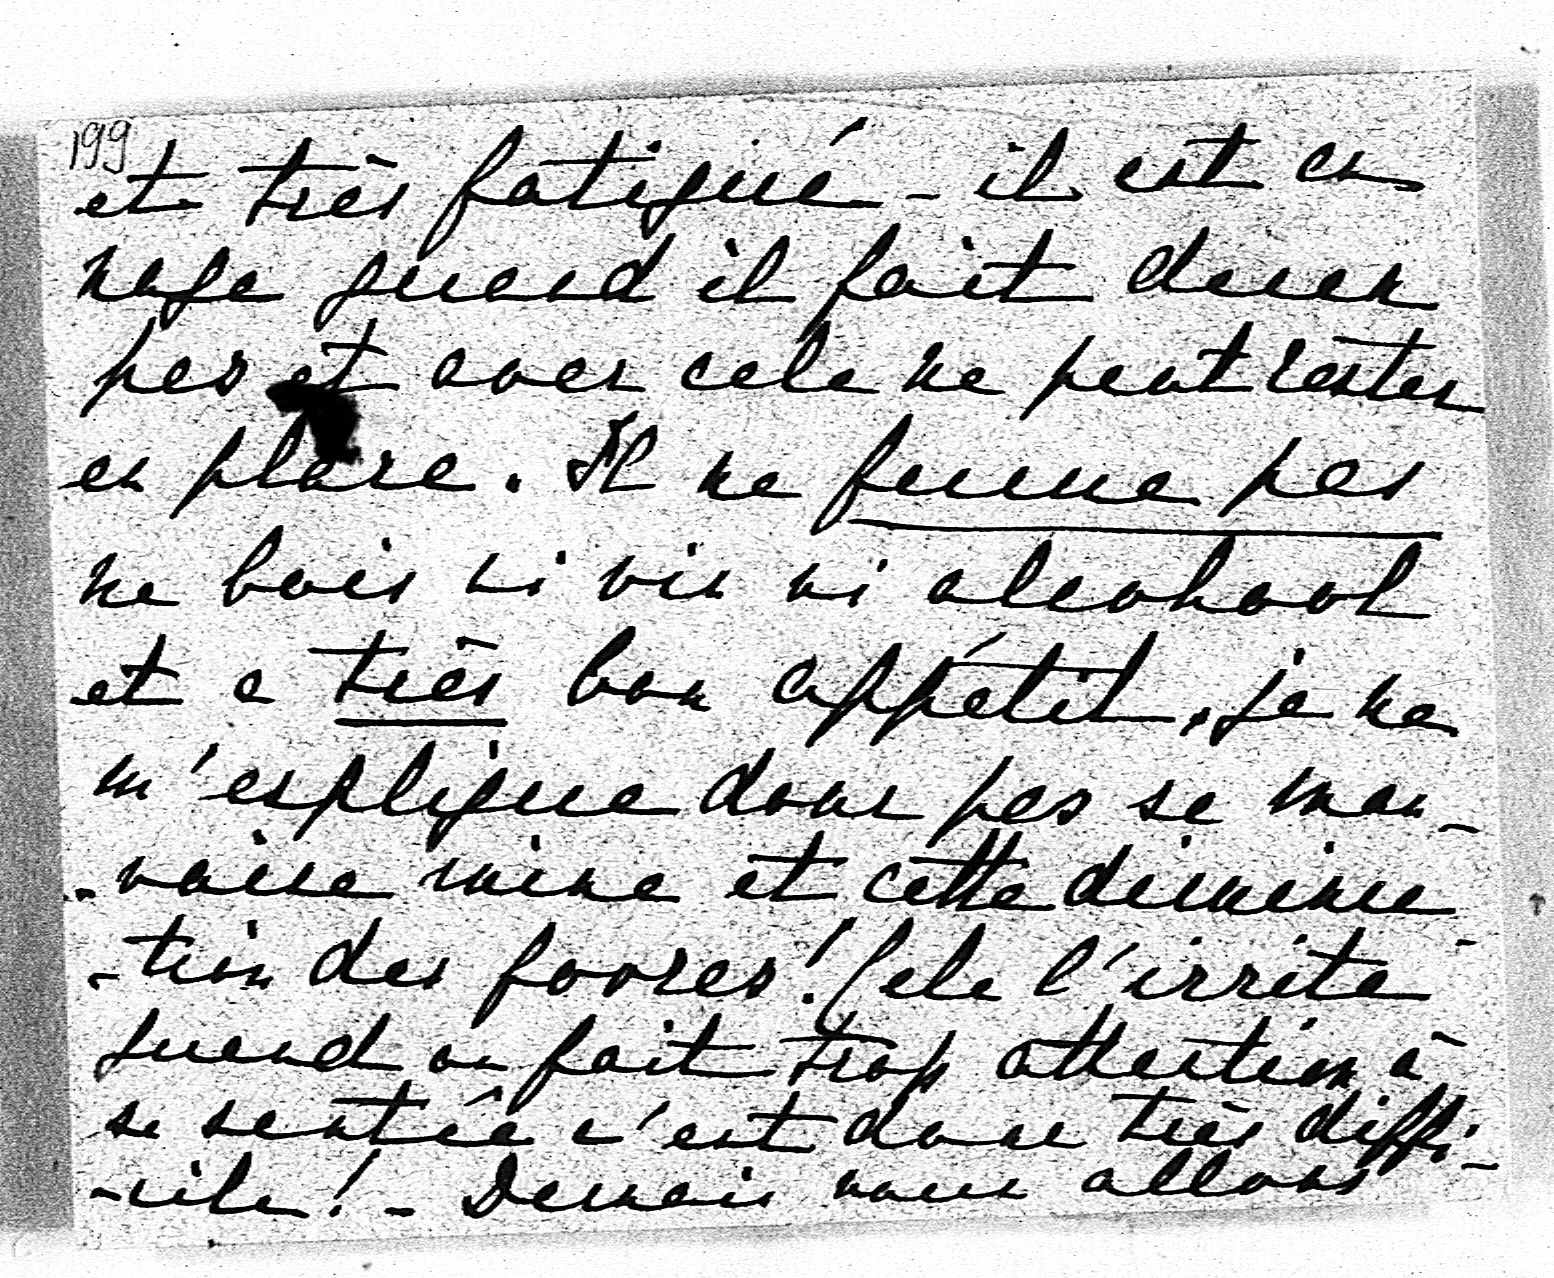 199
et très fatigué - il est en
nage quand il fait deux
pas et avec cela ne peut rester
en place. Il ne fume pas
ne bois ni vin ni alcohool
et a très bon appétit, je ne
m'esplique donc pas sa mau-
-vaise mine et cette diminu
-tion des forces! Cela l'irrite
quand on fait trop attention à
sa santée c'est donc très diffi-
-cile! - Demain nous allons